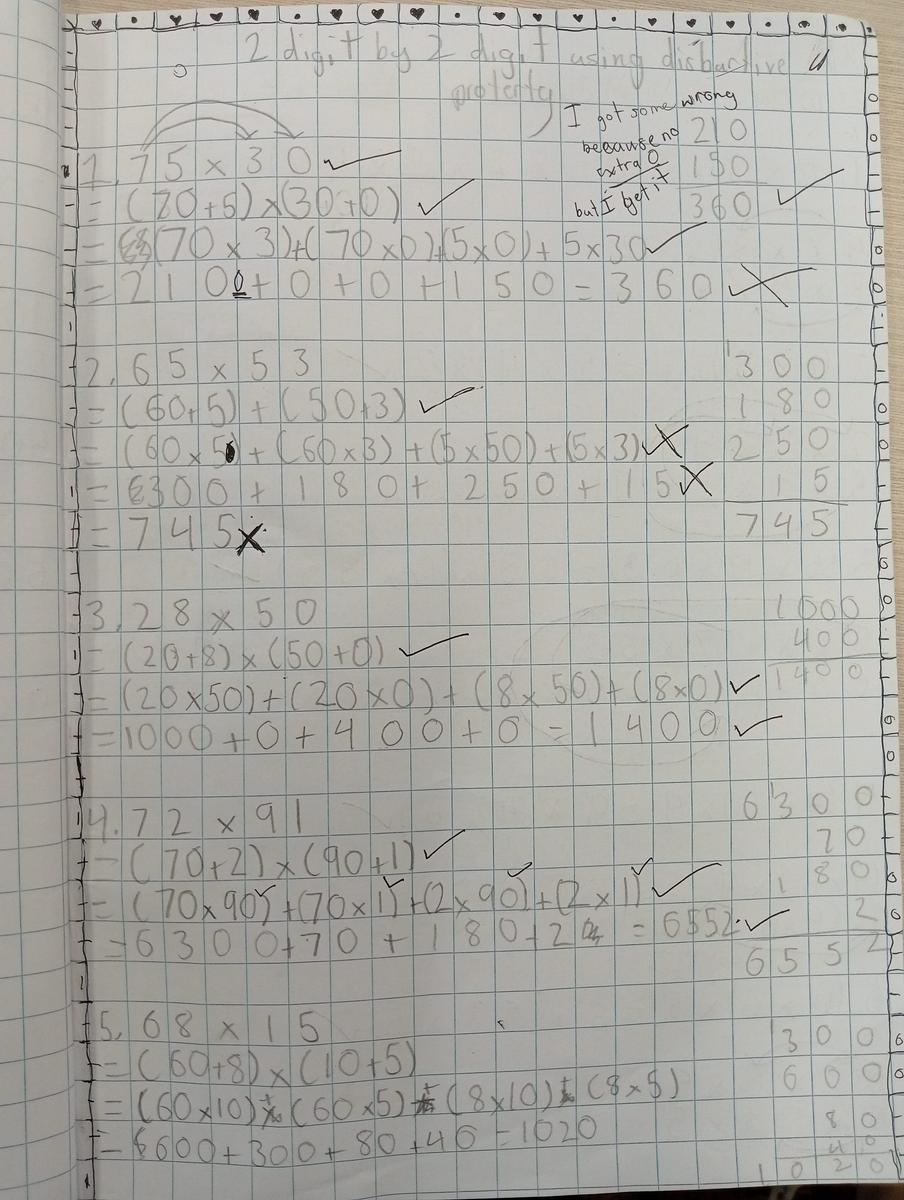 2 digit by 2 digit using disbactive
proterty
I got some wrong
because no
extra 0
but I get it
210
150
360
1. 75 × 30
= (70+5) × (30+0)
= (70 × 3) + (70 × 0) + (5 × 0) + 5 × 30
= 2100 + 0 + 0 + 150 = 360
2. 65 × 53
= (60+5) + (50+3)
= (60 × 5) + (60 × 3) + (5 × 50) + (5 × 3)
= 300 + 180 + 250 + 15
= 745
1300
180
250
15
745
3. 28 × 50
= (20+8) × (50+0)
= (20×50) + (20×0) + (8×50) + (8×0)
= 1000 + 0 + 400 + 0 = 1400
1000
400
1400
4. 72 × 91
= (70+2) × (90+1)
= (70×90) + (70×1) + (2×90) + (2×1)
= 6300 + 70 + 180 + 2 = 6552
6300
70
180
2
6552
5. 68 × 15
= (60+8) × (10+5)
= (60×10) + (60×5) + (8×10) + (8×5)
= 600 + 300 + 80 + 40 = 1020
300
600
80
40
1020